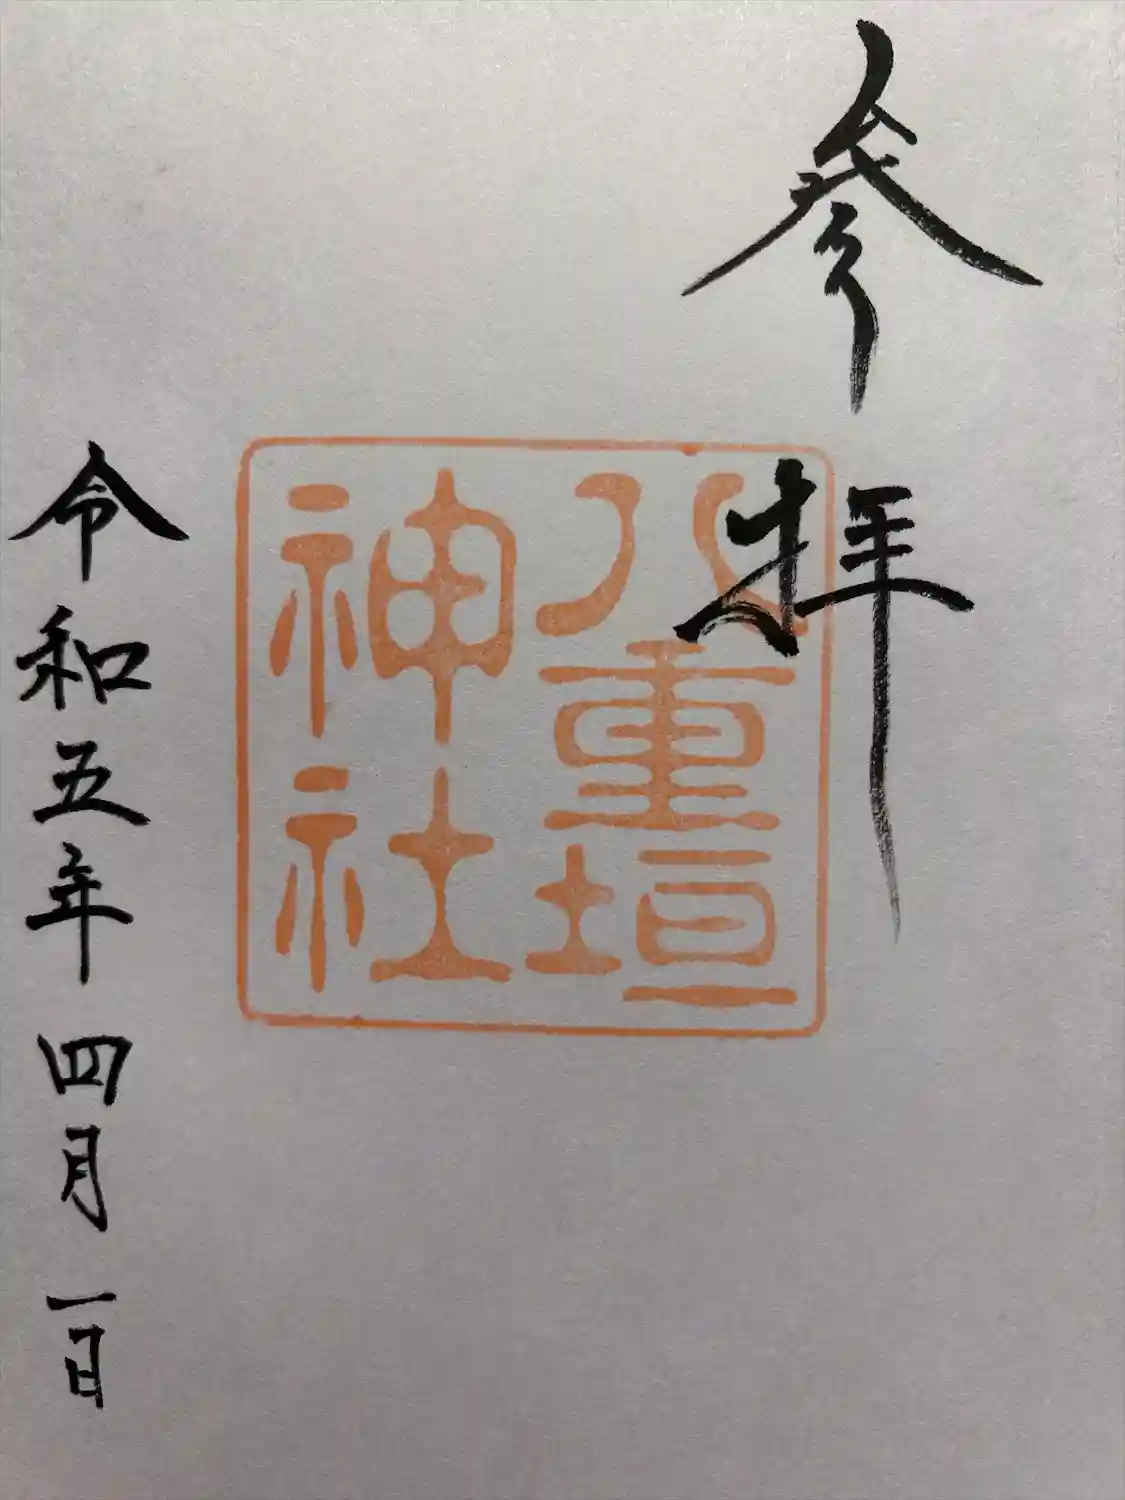 参拝
八重垣
神社
令和五年四月一日